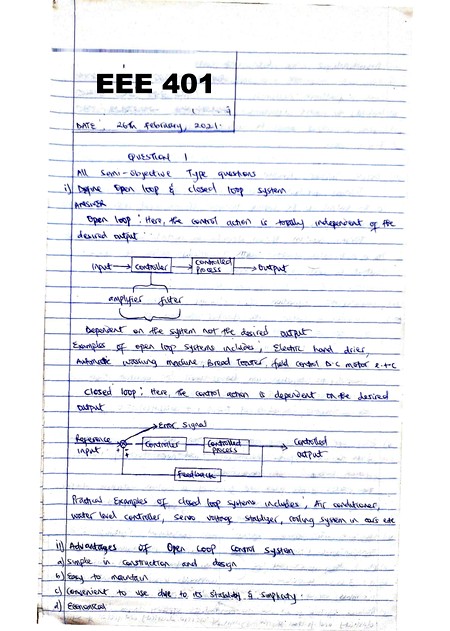 EEE 401
DATE: 26th February, 2021.
QUESTION 1
All semi-objective Type questions
i) Define Open loop & closed loop system
ANSWER
Open loop: Here, the control action is totally independent of the
desired output.
Input → Controller → Controlled Process → Output
amplifier filter
Dependent on the system not the desired output
Examples of open loop systems includes; Electric hand drier,
Automatic washing machine, Bread Toaster, field control D.C motor e.t.c
Closed loop: Here, the control action is dependent on the desired
output
Error signal
Reference input
Controller
Controlled process
Controlled output
Feedback
Practical Examples of closed loop systems includes; Air conditioner,
water level controller, servo voltage stabilizer, cooling system in cars etc
ii) Advantages of Open Loop control system
a) Simple in construction and design
b) Easy to maintain
c) Convenient to use due to its stability & simplicity.
d) Economical